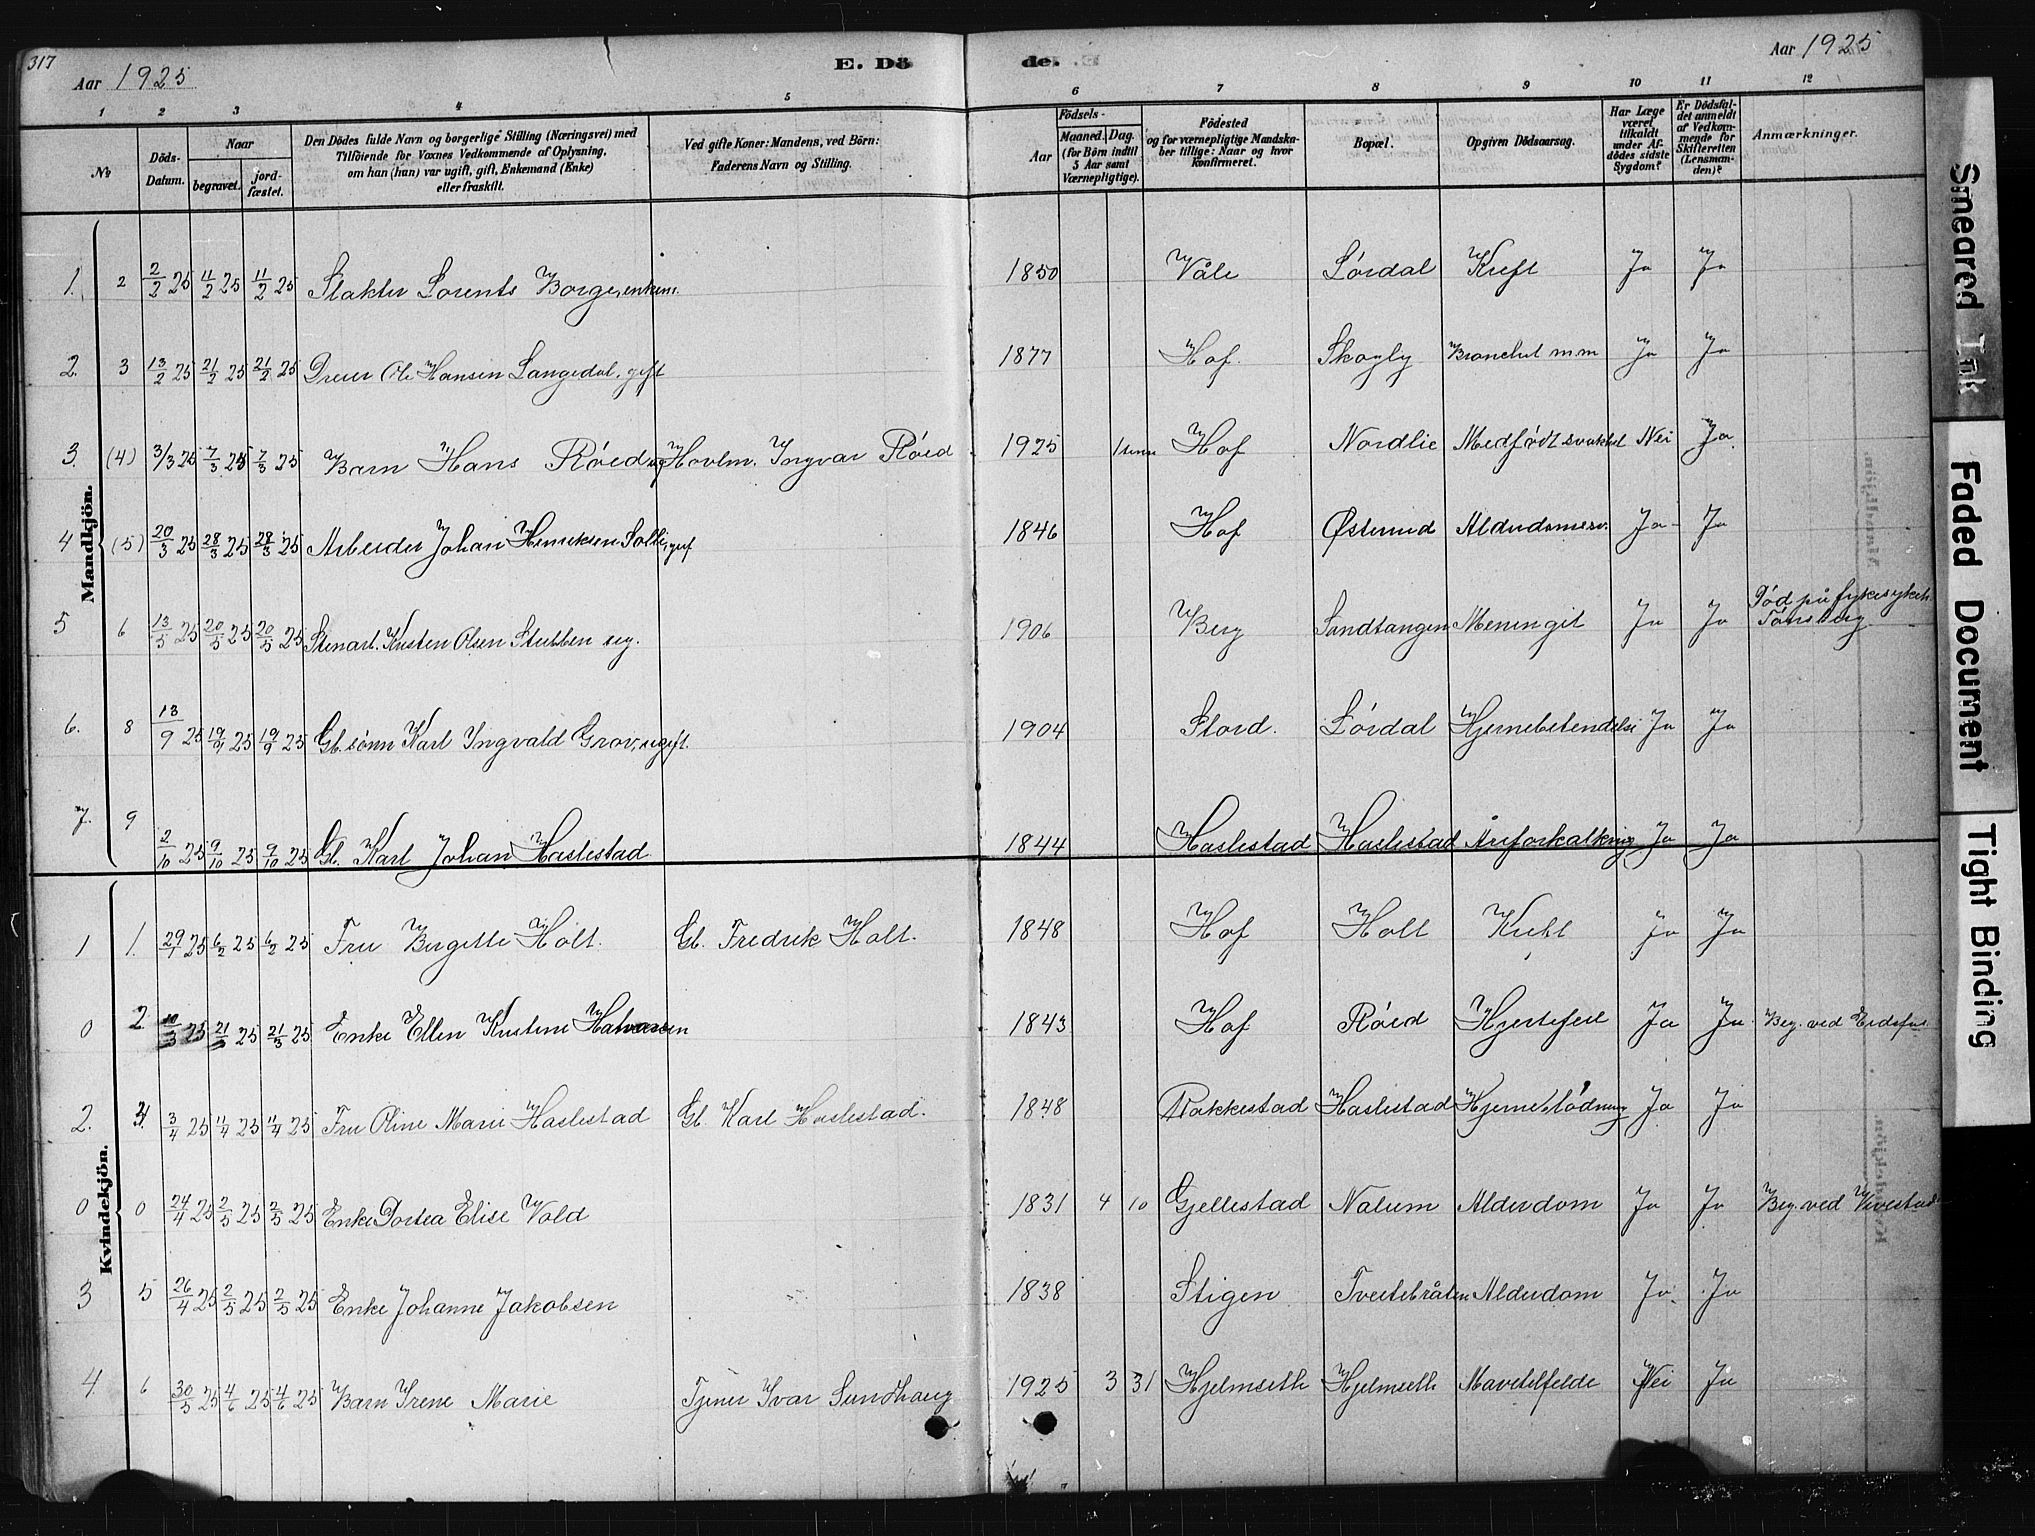 317
Aar 1925
E. Dö
de.
Aar 1925
1 2 3 4 5 6 7 8 9 10 11 12
No
Döds-Datum.
Naar
begravet.
jord-fæstet.
Den Dödes fulde Navn og borgerlige Stilling (Næringsvei) med
Tilföiende for Voxnes Vedkommende af Oplysning,
om han (hun) var ugift, gift, Enkemand (Enke)
eller fraskilt.
Ved gifte Koner: Mandens, ved Börn:
Faderens Navn og Stilling.
Födsels-
Aar
Maaned. Dag.
(for Börn indtil
5 Aar samt
Værnepligtige).
Födested
og for værnepligtige Mandska-
ber tillige: Naar og hvor
konfirmeret.
Bopæl.
Opgiven Dödsaarsag.
Har Læge
været
tilkaldt
under Af-
dödes sidste
Sygdom?
Er Dödsfal-
det anmeldt
af Vedkom-
mende for
Skifteretten
(Lensman-
den)?
Anmærkninger.
Mandkjön.
1. 2 2/2 25 11/2 25 11/2 25 Slakter Lorents Borge, enkem. 1850 Våle Lørdal Kreft Ja Ja
2. 3 13/2 25 21/2 25 21/2 25 Dreier Ole Hansen Langedal, gift 1877 Hof. Skogly Bronchit m.m Ja Ja
3. (4) 3/3 25 7/3 25 7/3 25 Barn Hans Røed ug Hovlm. Ingvar Røed 1925 1 time Hof Nordlie Medfødt svakhet Nei Ja
4 (5) 20/3 25 28/3 25 28/3 25 Arbeider Johan Henriksen Solli, gift 1846 Hof Østerud Alderdomssv. Ja Ja
5 6 13/5 25 20/5 25 20/5 25 Stenarb. Kristen Olsen Stubben ug. 1906 Berg Sandtangen Meningit Ja Ja Død på fylkesykeh. Tønsberg
6. 8 13/9 25 19/9 25 19/9 25 Gb. sønn Karl Ingvald Grov, ugift. 1904 Stord. Lørdal Hjernebetendelse Ja Ja
7. 9 2/10 25 9/10 25 9/10 25 Gb. Karl Johan Haslestad 1844 Haslestad Haslestad Åreforkalkning Ja Ja
Kvindekjön.
1 1. 29/1 25 6/2 25 6/2 25 Fru Birgitte Holt. Gb. Fredrik Holt. 1848 Hof Holt Kreft Ja Ja
0 2 10/3 25 21/3 25 21/3 25 Enke Ellen Kristine Halvorsen 1843 Hof Røed Hjertefeil Ja Ja Beg. ved Eidsfos
2. 3/4 25 11/4 25 11/4 25 Fru Oline Marie Haslestad Gb. Karl Haslestad. 1848 Rakkestad Haslestad Hjerneblødning Ja Ja
0 0 24/4 25 2/5 25 2/5 25 Enke Dortea Elise Vold 1831 4 10 Gjellestad Nalum Alderdom Ja Ja Beg. ved Vivestad
3 5 26/4 25 2/5 25 2/5 25 Enke Johanne Jakobsen 1838 Stigen Tveitebråten Alderdom Ja Ja
4 6 30/5 25 4/6 25 4/6 25 Barn Irene Marie Tjener Ivar Sundhaug 1925 3 31 Hjelmseth Hjelmseth Mavetilfelde Nei Ja
Smeared Ink
Faded Document
Tight Binding